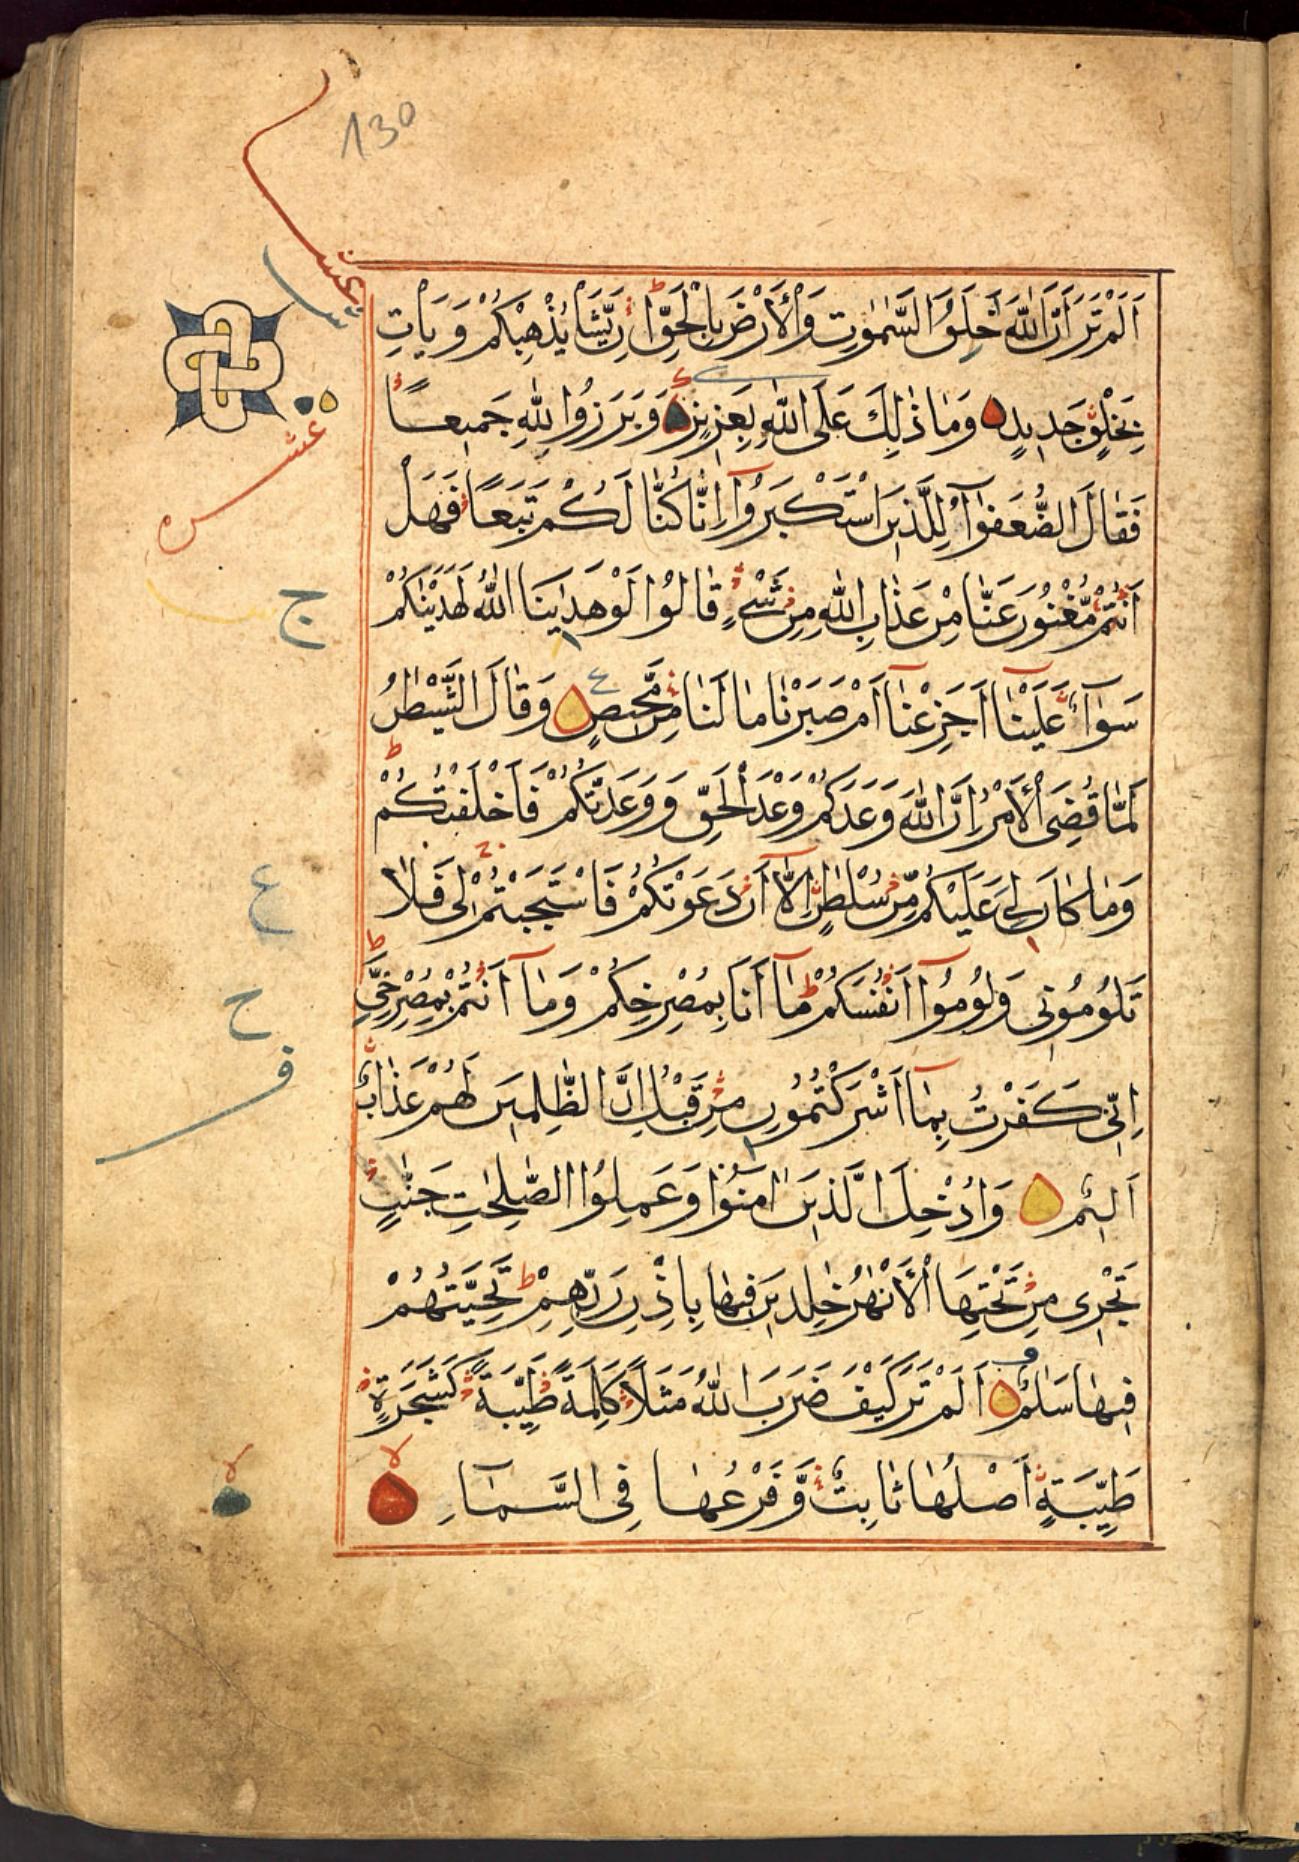 130
اَلَمْ تَرَ اَنَّ اللّٰهَ خٰلِقُ السَّمٰوٰتِ وَالْاَرْضَ بِالْحَقِّ اِنْ يَّشَا يُذْهِبْكُمْ وَ يَاتِ
عشر
بِخَلْقٍ جَدِيدٍ وَمَا ذٰلِكَ عَلَى اللّٰهِ بِعَزِيزٍ وَ بَرَزُوا لِلّٰهِ جَمِيعًا
فَقَالَ الضُّعَفٰؤُا لِلَّذِينَ اسْتَكْبَرُوا اِنَّا كُنَّا لَكُمْ تَبَعًا فَهَلْ
اَنْتُمْ مُّغْنُونَ عَنَّا مِنْ عَذَابِ اللّٰهِ مِنْ شَيْءٍ قَالُوا لَوْ هَدٰينَا اللّٰهُ لَهَدَيْنٰكُمْ
ج
سَوَآءٌ عَلَيْنَا اَجَزِعْنَا اَمْ صَبَرْنَا مَا لَنَا مِنْ مَّحِيصٍ وَ قَالَ الشَّيْطٰنُ
لَمَّا قُضِيَ الْاَمْرُ اِنَّ اللّٰهَ وَعَدَكُمْ وَعْدَ الْحَقِّ وَ وَعَدْتُّكُمْ فَاَخْلَفْتُكُمْ
وَمَا كَانَ لِي عَلَيْكُمْ مِّنْ سُلْطٰنٍ اِلَّا اَنْ دَعَوْتُكُمْ فَاسْتَجَبْتُمْ لِى فَلَا
ع
تَلُومُونِى وَ لُومُوا اَنْفُسَكُمْ مَا اَنَا بِمُصْرِخِكُمْ وَمَا اَنْتُمْ بِمُصْرِخِيَّ
ح
اِنِّى كَفَرْتُ بِمَا اَشْرَكْتُمُونِ مِنْ قَبْلُ اِنَّ الظّٰلِمِينَ لَهُمْ عَذَابٌ
ف
اَلِيْمٌ وَاُدْخِلَ الَّذِينَ اٰمَنُوا وَعَمِلُوا الصّٰلِحٰتِ جَنّٰتٍ
تَجْرِى مِنْ تَحْتِهَا الْاَنْهٰرُ خٰلِدِينَ فِيهَا بِاِذْنِ رَبِّهِمْ تَحِيَّتُهُمْ
فِيهَا سَلٰمٌ اَلَمْ تَرَ كَيْفَ ضَرَبَ اللّٰهُ مَثَلًا كَلِمَةً طَيِّبَةً كَشَجَرَةٍ
طَيِّبَةٍ اَصْلُهَا ثَابِتٌ وَّ فَرْعُهَا فِى السَّمَآءِ لا